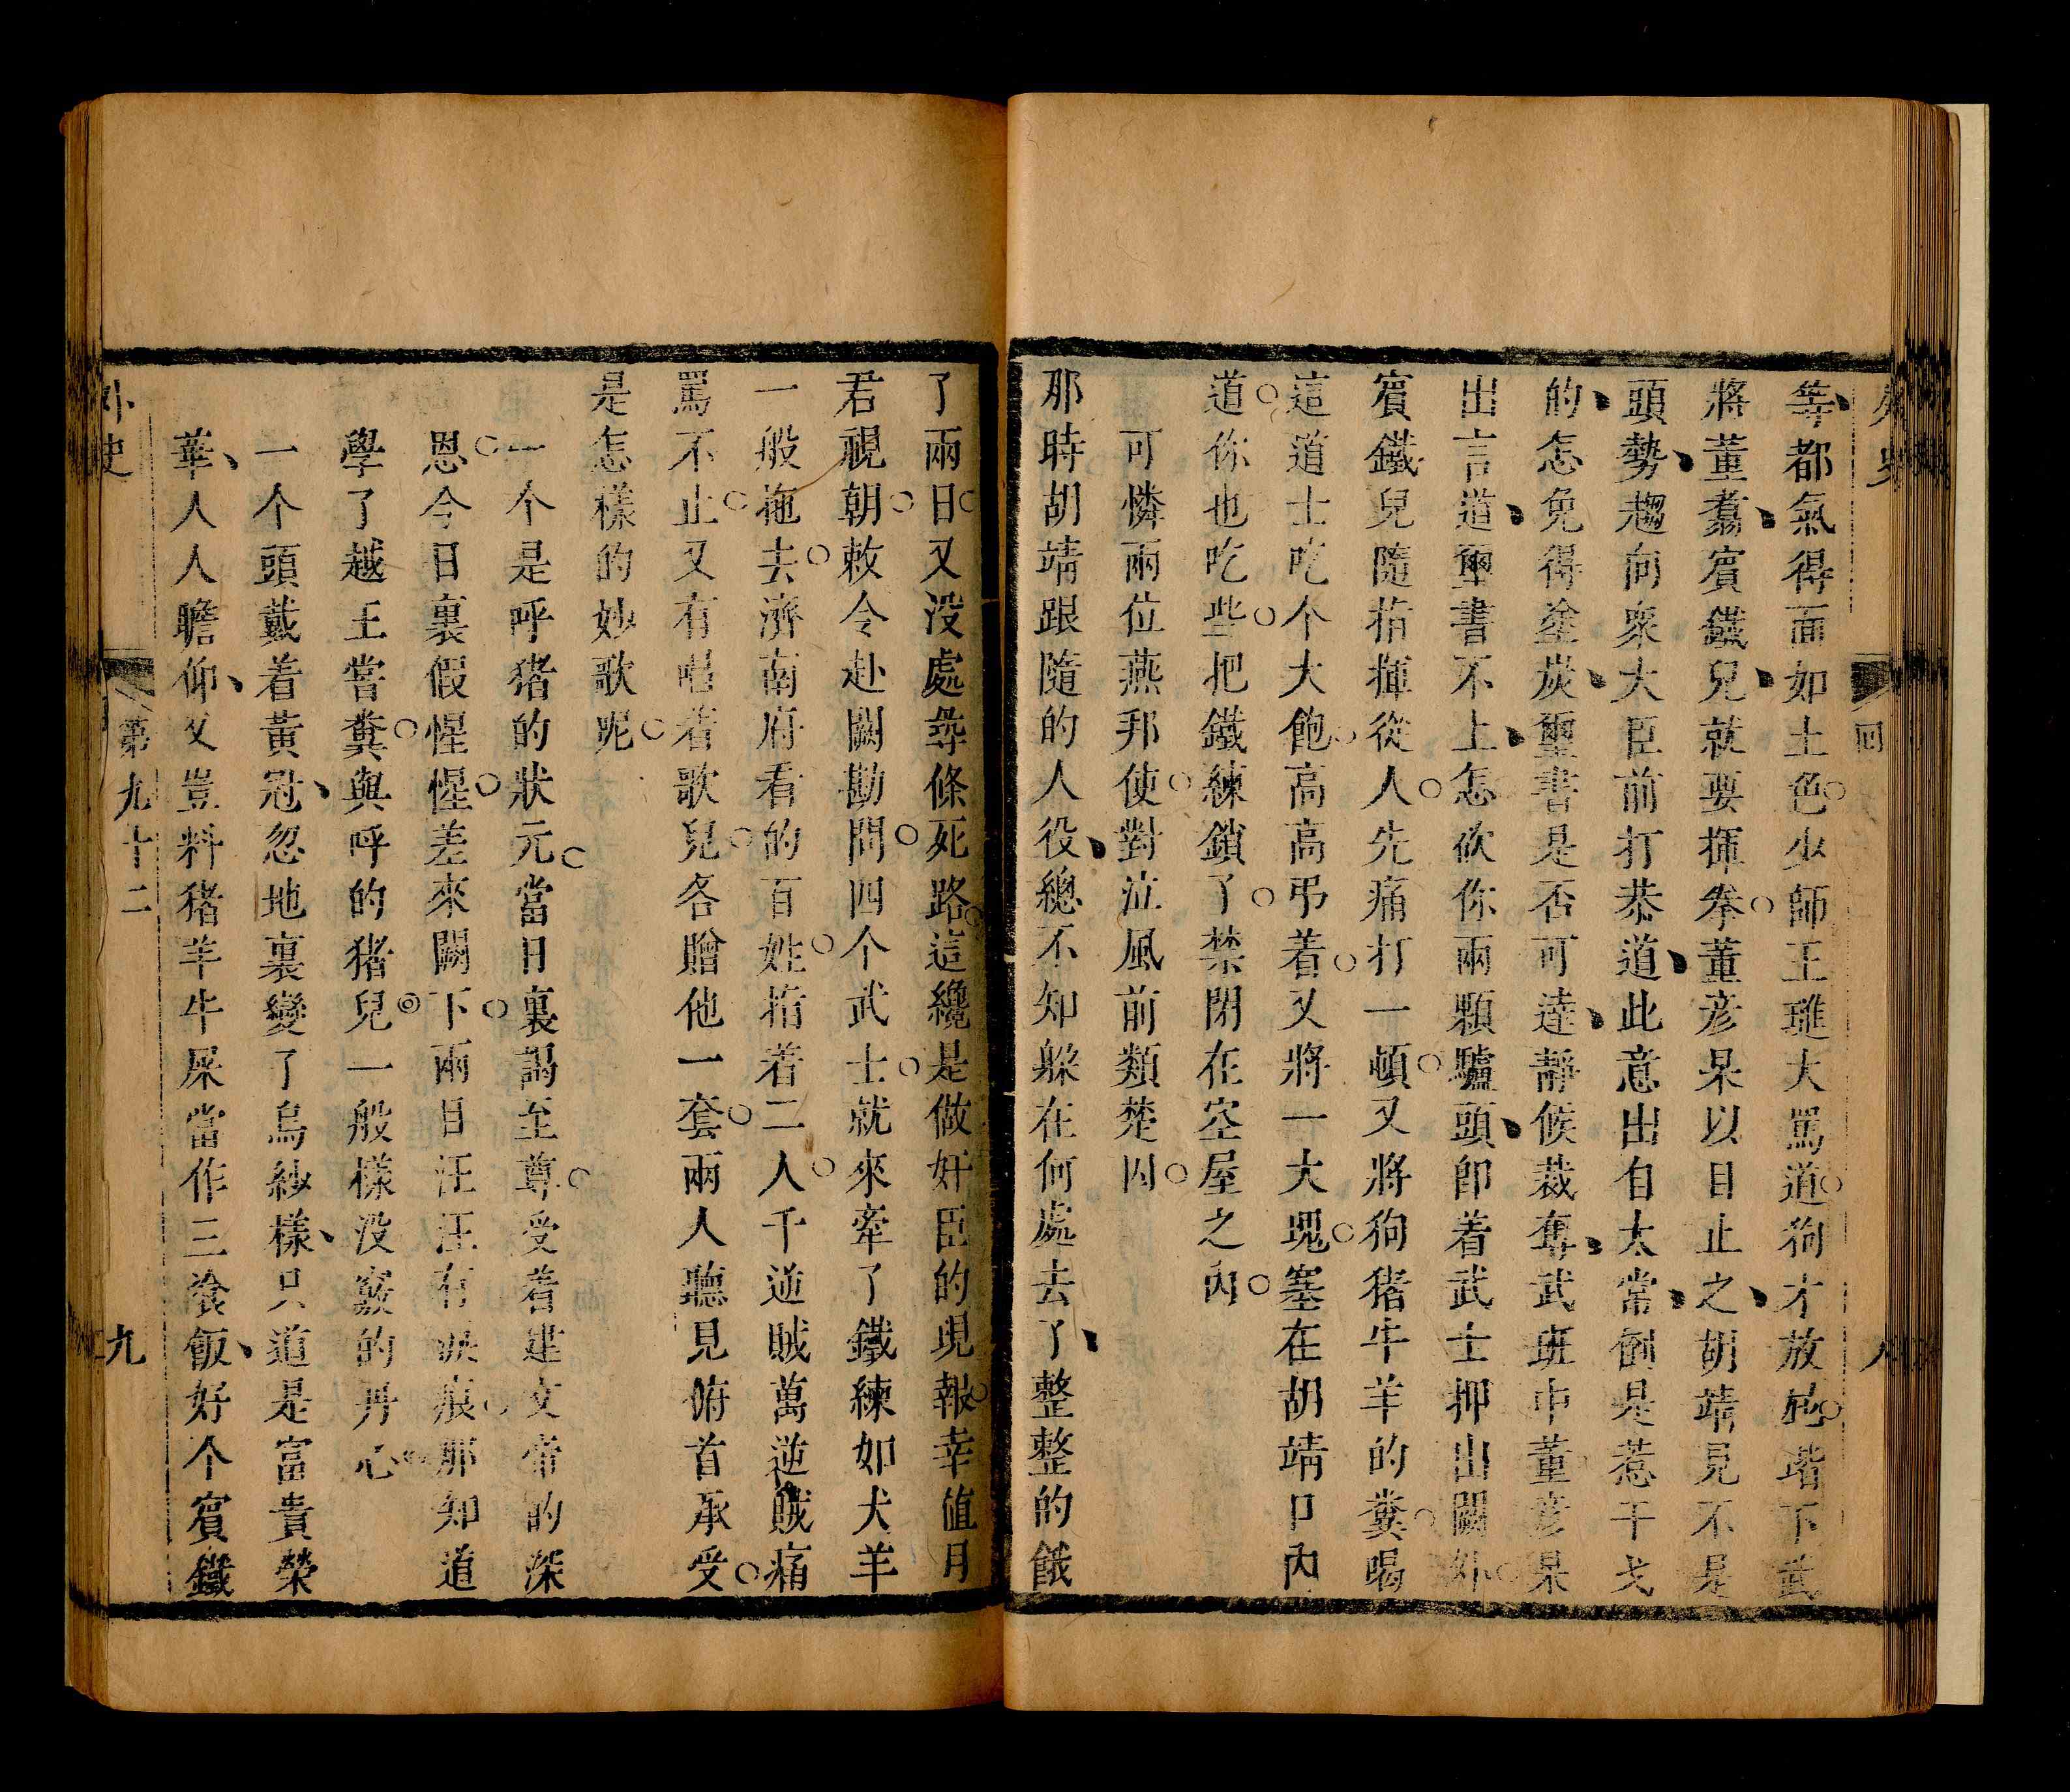 外史
回
八
等都氣得面如土色少師王璡大罵道狗才放屁階下武
將董翥賓鐵兒就要揮拳董彥杲以目止之胡靖見不是
頭勢趨向衆大臣前打恭道此意出自太常倒是惹干戈
的怎免得塗炭璽書是否可達靜候裁奪武班中董彥杲
出言道璽書不上怎砍你兩顆驢頭卽着武士押出闕外
賓鐵兒隨指揮從人先痛打一頓又將狗猪牛羊的糞喝
這道士吃个大飽高高弔着又將一大塊塞在胡靖口內
道你也吃些把鐵練鎖了禁閉在空屋之內
可憐兩位燕邦使對泣風前類楚囚
那時胡靖跟隨的人役總不知躲在何處去了整整的餓
了兩日又没處尋條死路這纔是做奸臣的現報幸値月
君視朝敕令赴闕勘問四个武士就來牽了鐵練如犬羊
一般拖去濟南府看的百姓指着二人千逆賊萬逆賊痛
罵不止又有唱着歌兒各贈他一套兩人聽見俯首承受
是怎樣的妙歌呢
一个是呼猪的狀元當日裏謁至尊受着建文帝的深
恩今日裏假惺惺差來闕下兩目汪汪有淚痕那知道
學了越王嘗糞與呼的猪兒一般樣没竅的丹心
一个頭戴着黃冠忽地裏變了烏紗樣只道是富貴榮
華人人瞻仰又豈料猪羊牛屎當作三飡飯好个賓鐵
外史
第九十二
九